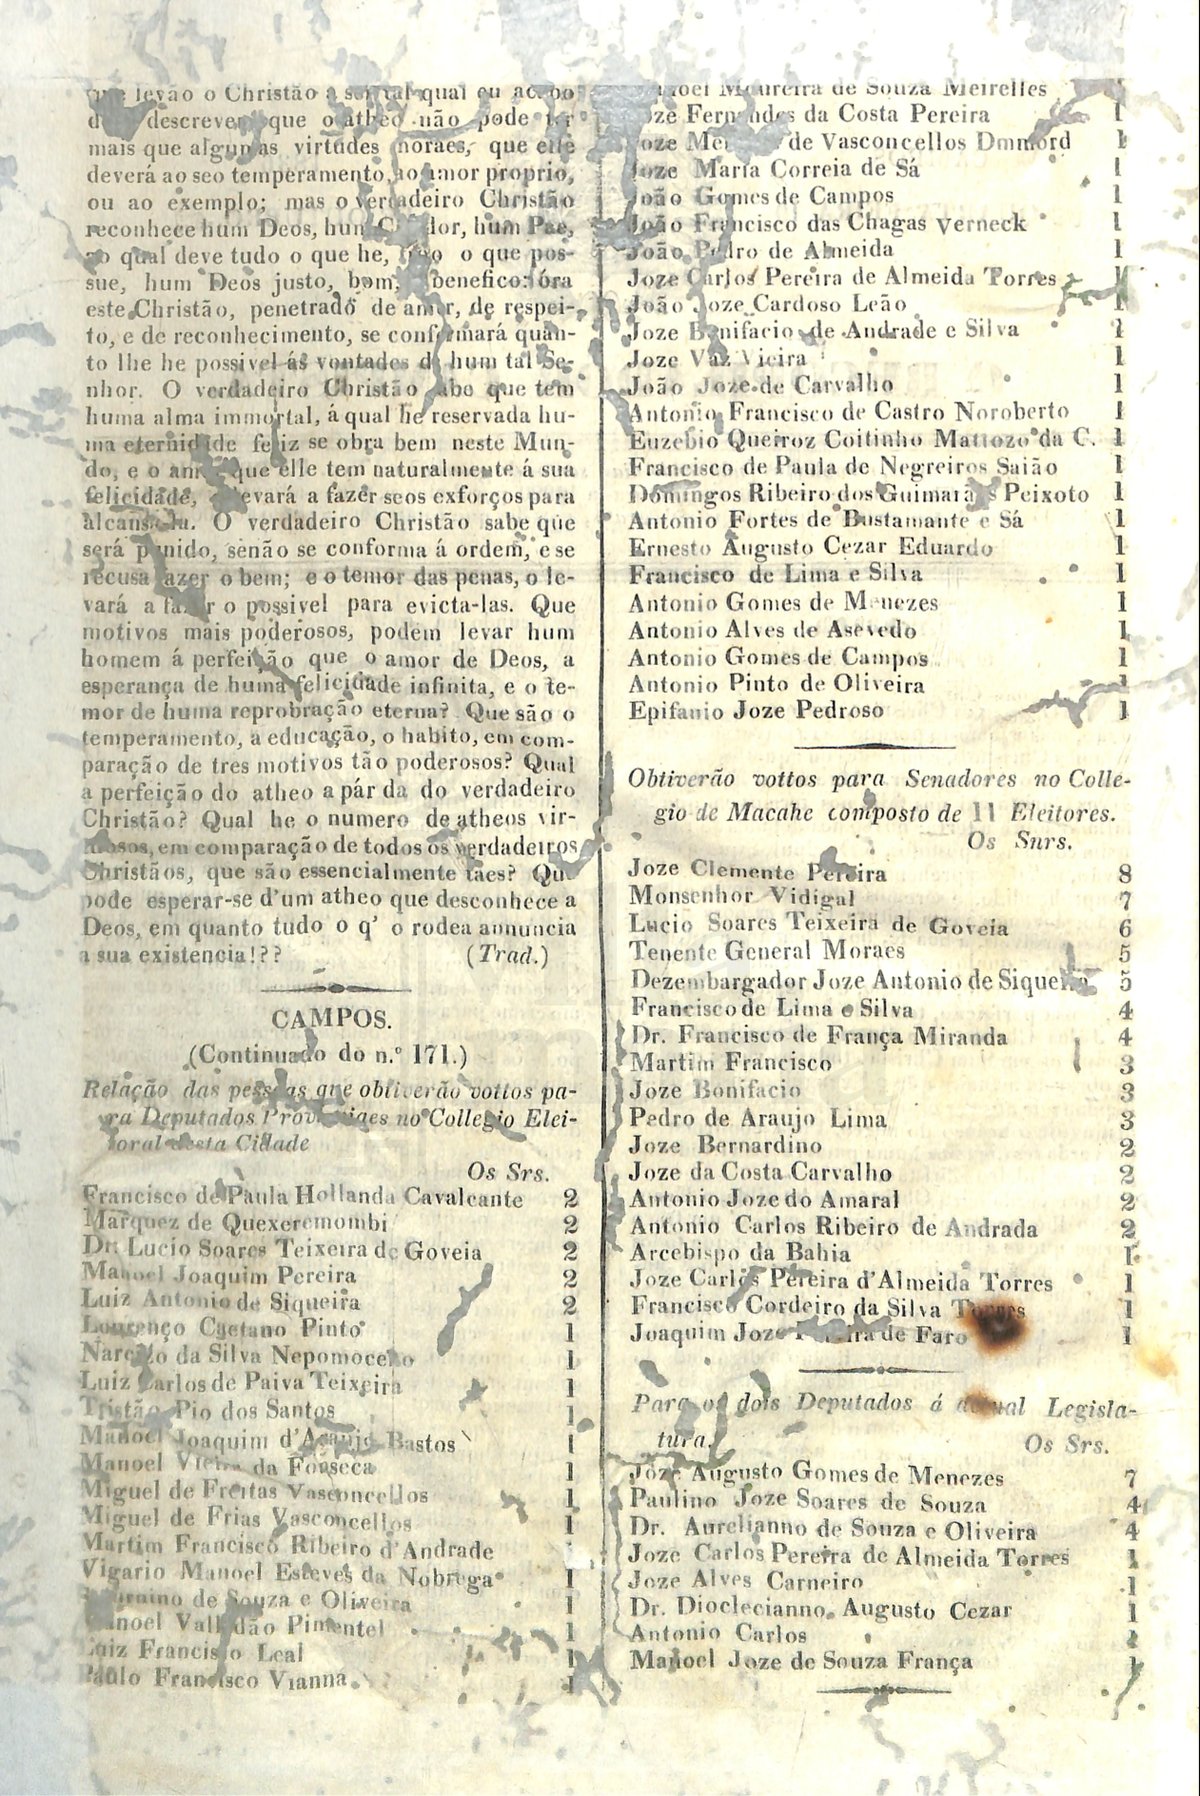 que levão o Christão a ser tal qual eu acabo
descrever, que o atheo não pode ter
mais que algumas virtudes moraes, que elle
deverá ao seo temperamento, ao amor proprio,
ou ao exemplo; mas o verdadeiro Christão
reconhece hum Deos, hum Creador, hum Pae,
ao qual deve tudo o que he, o que pos-
sue, hum Deos justo, bom, benefico: óra
este Christão, penetrado de amor, de respei-
to, e de reconhecimento, se conformará quan-
to lhe he possivel ás vontades de hum tal Se-
nhor. O verdadeiro Christão sabe que tem
huma alma immortal, á qual he reservada hu-
ma eternidade feliz se obra bem neste Mun-
do, e o amor que elle tem naturalmente á sua
felicidade, levará a fazer seos exforços para
alcansala. O verdadeiro Christão sabe que
será punido, senão se conforma á ordem, e se
recusa fazer o bem; e o temor das penas, o le-
vará a fazer o possivel para evicta-las. Que
motivos mais poderosos, podem levar hum
homem á perfeição que o amor de Deos, a
esperança de huma felicidade infinita, e o te-
mor de huma reprobração eterna? Que são o
temperamento, a educação, o habito, em com-
paração de tres motivos tão poderosos? Qual
a perfeição do atheo a pár da do verdadeiro
Christão? Qual he o numero de atheos vir-
tuosos, em comparação de todos os verdadeiros
Christãos, que são essencialmente taes? Que
pode esperar-se d'um atheo que desconhece a
Deos, em quanto tudo o q' o rodea annuncia
a sua existencia!??  (Trad.)
CAMPOS.
(Continuado do n.º 171.)
Relação das pessoas que obtiverão vottos pa-
ra Deputados Provinciaes no Collegio Elei-
toral desta Cidade
Os Srs.
Francisco de Paula Hollanda Cavalcante 2
Marquez de Quexeremombi 2
Dr. Lucio Soares Teixeira de Goveia 2
Manoel Joaquim Pereira 2
Luiz Antonio de Siqueira 2
Lourenço Caetano Pinto 1
Narcizo da Silva Nepomoceno 1
Luiz Carlos de Paiva Teixeira 1
Tristão Pio dos Santos 1
Manoel Joaquim d'Araujo Bastos 1
Manoel Vieira da Fonseca 1
Miguel de Freitas Vasconcellos 1
Miguel de Frias Vasconcellos 1
Martim Francisco Ribeiro d'Andrade
Vigario Manoel Esteves da Nobrega 1
de Souza e Oliveira 1
Manoel Valladão Pimentel 1
Luiz Francisco Leal 1
Paulo Francisco Vianna 1
Manoel Moureira de Souza Meirelles 1
Joze Fernandes da Costa Pereira 1
Joze de Vasconcellos Dmmord 1
Joze Maria Correia de Sá 1
João Gomes de Campos 1
João Francisco das Chagas Verneck 1
João Pedro de Almeida 1
Joze Carlos Pereira de Almeida Torres 1
João Joze Cardoso Leão 1
Joze Bonifacio de Andrade e Silva 1
Joze Vaz Vieira 1
João Joze de Carvalho 1
Antonio Francisco de Castro Noroberto 1
Euzebio Queiroz Coitinho Mattozo da C. 1
Francisco de Paula de Negreiros Saião 1
Domingos Ribeiro dos Guimarães Peixoto 1
Antonio Fortes de Bustamante e Sá 1
Ernesto Augusto Cezar Eduardo 1
Francisco de Lima e Silva 1
Antonio Gomes de Menezes 1
Antonio Alves de Asevedo 1
Antonio Gomes de Campos 1
Antonio Pinto de Oliveira 1
Epifanio Joze Pedroso 1
Obtiverão vottos para Senadores no Colle-
gio de Macahe composto de 11 Eleitores.
Os Snrs.
Joze Clemente Pereira 8
Monsenhor Vidigal 7
Lucio Soares Teixeira de Goveia 6
Tenente General Moraes 5
Dezembargador Joze Antonio de Siqueira 5
Francisco de Lima e Silva 4
Dr. Francisco de França Miranda 4
Martim Francisco 3
Joze Bonifacio 3
Pedro de Araujo Lima 3
Joze Bernardino 2
Joze da Costa Carvalho 2
Antonio Joze do Amaral 2
Antonio Carlos Ribeiro de Andrada 2
Arcebispo da Bahia 1
Joze Carlos Pereira d'Almeida Torres 1
Francisco Cordeiro da Silva Torres 1
Joaquim Joze Pereira de Faro 1
Para os dois Deputados á actual Legisla-
tura.  Os Srs.
Joze Augusto Gomes de Menezes 7
Paulino Joze Soares de Souza 4
Dr. Aurelianno de Souza e Oliveira 4
Joze Carlos Pereira de Almeida Torres 1
Joze Alves Carneiro 1
Dr. Dioclecianno Augusto Cezar 1
Antonio Carlos 1
Manoel Joze de Souza França 1